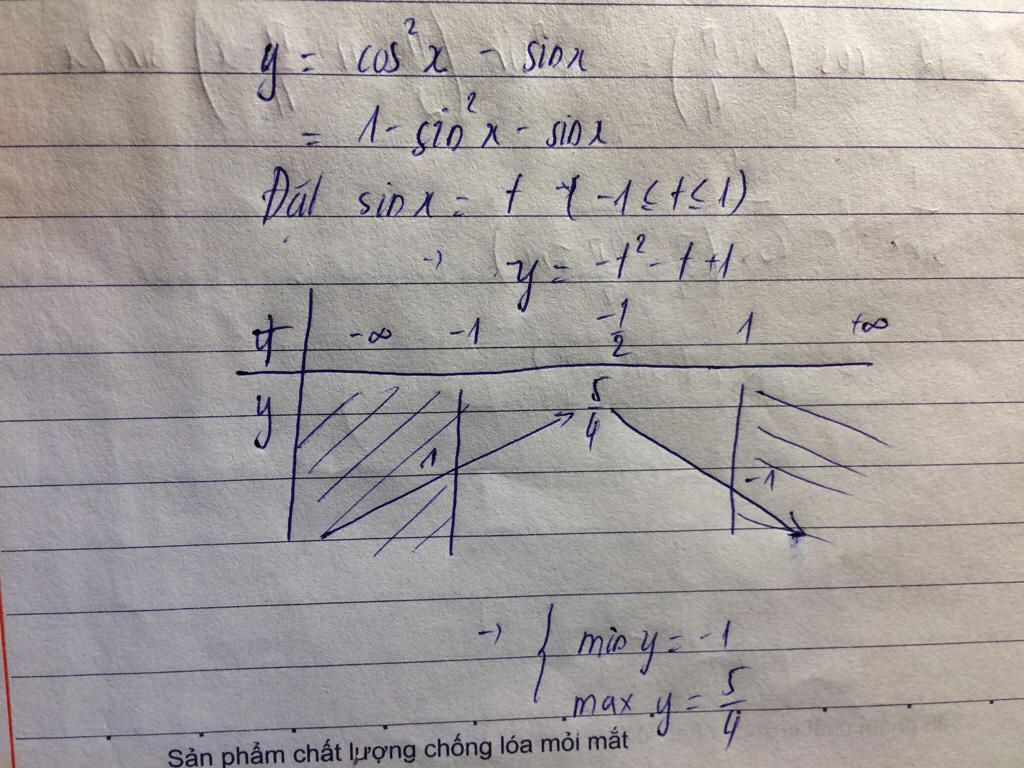 y = cos²x - sinx
= 1 - sin²x - sinx
Đặt sinx = t (-1 ≤ t ≤ 1)
→ y = -t² - t + 1
t -∞ -1 -1/2 1 +∞
y 1 5/4 -1
→ { min y = -1
max y = 5/4
Sản phẩm chất lượng chống lóa mỏi mắt